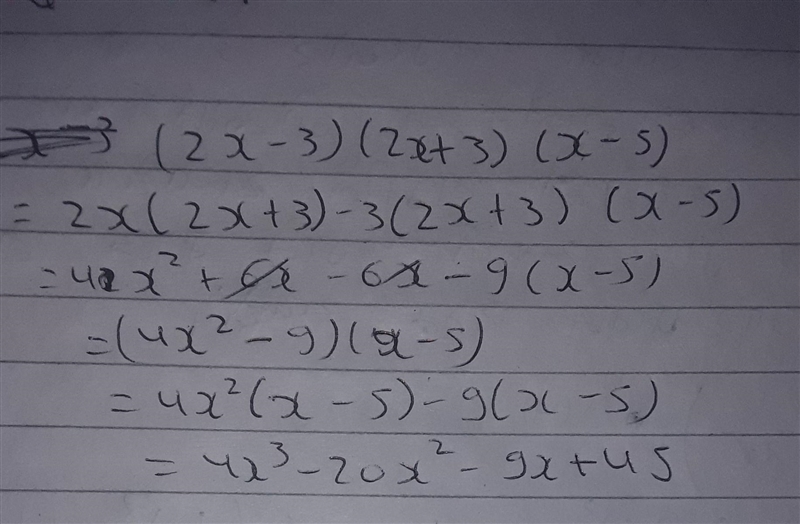 (2x-3)(2x+3) (x-5)
= 2x(2x+3)-3(2x+3) (x-5)
= 4x² + 6x - 6x - 9(x-5)
= (4x² - 9)(x-5)
= 4x²(x - 5) - 9(x - 5)
= 4x³ - 20x² - 9x + 45